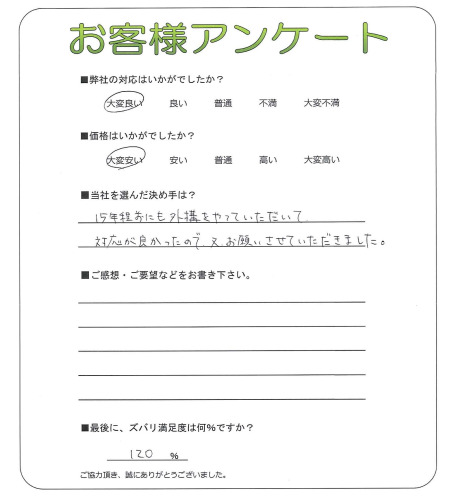 お客様アンケート
■弊社の対応はいかがでしたか?
大変良い 良い 普通 不満 大変不満
■価格はいかがでしたか?
大変安い 安い 普通 高い 大変高い
■当社を選んだ決め手は?
15年程前にも外構をやっていただいて
対応が良かったので、又、お願いさせていただきました。
■ご感想・ご要望などをお書き下さい。
■最後に、ズバリ満足度は何%ですか?
120 %
ご協力頂き、誠にありがとうございました。